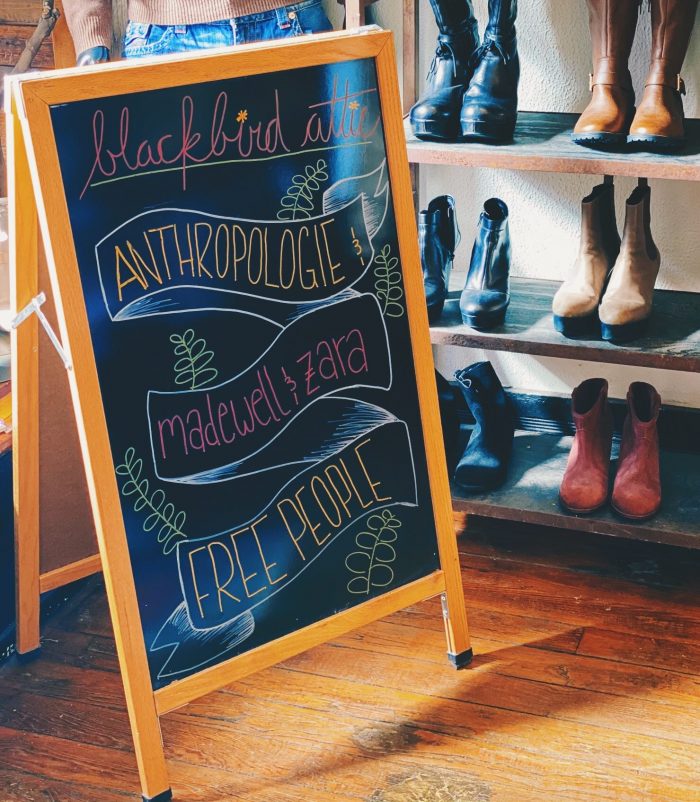 blackbird attic
ANTHROPOLOGIE &
madewell & zara
FREE PEOPLE